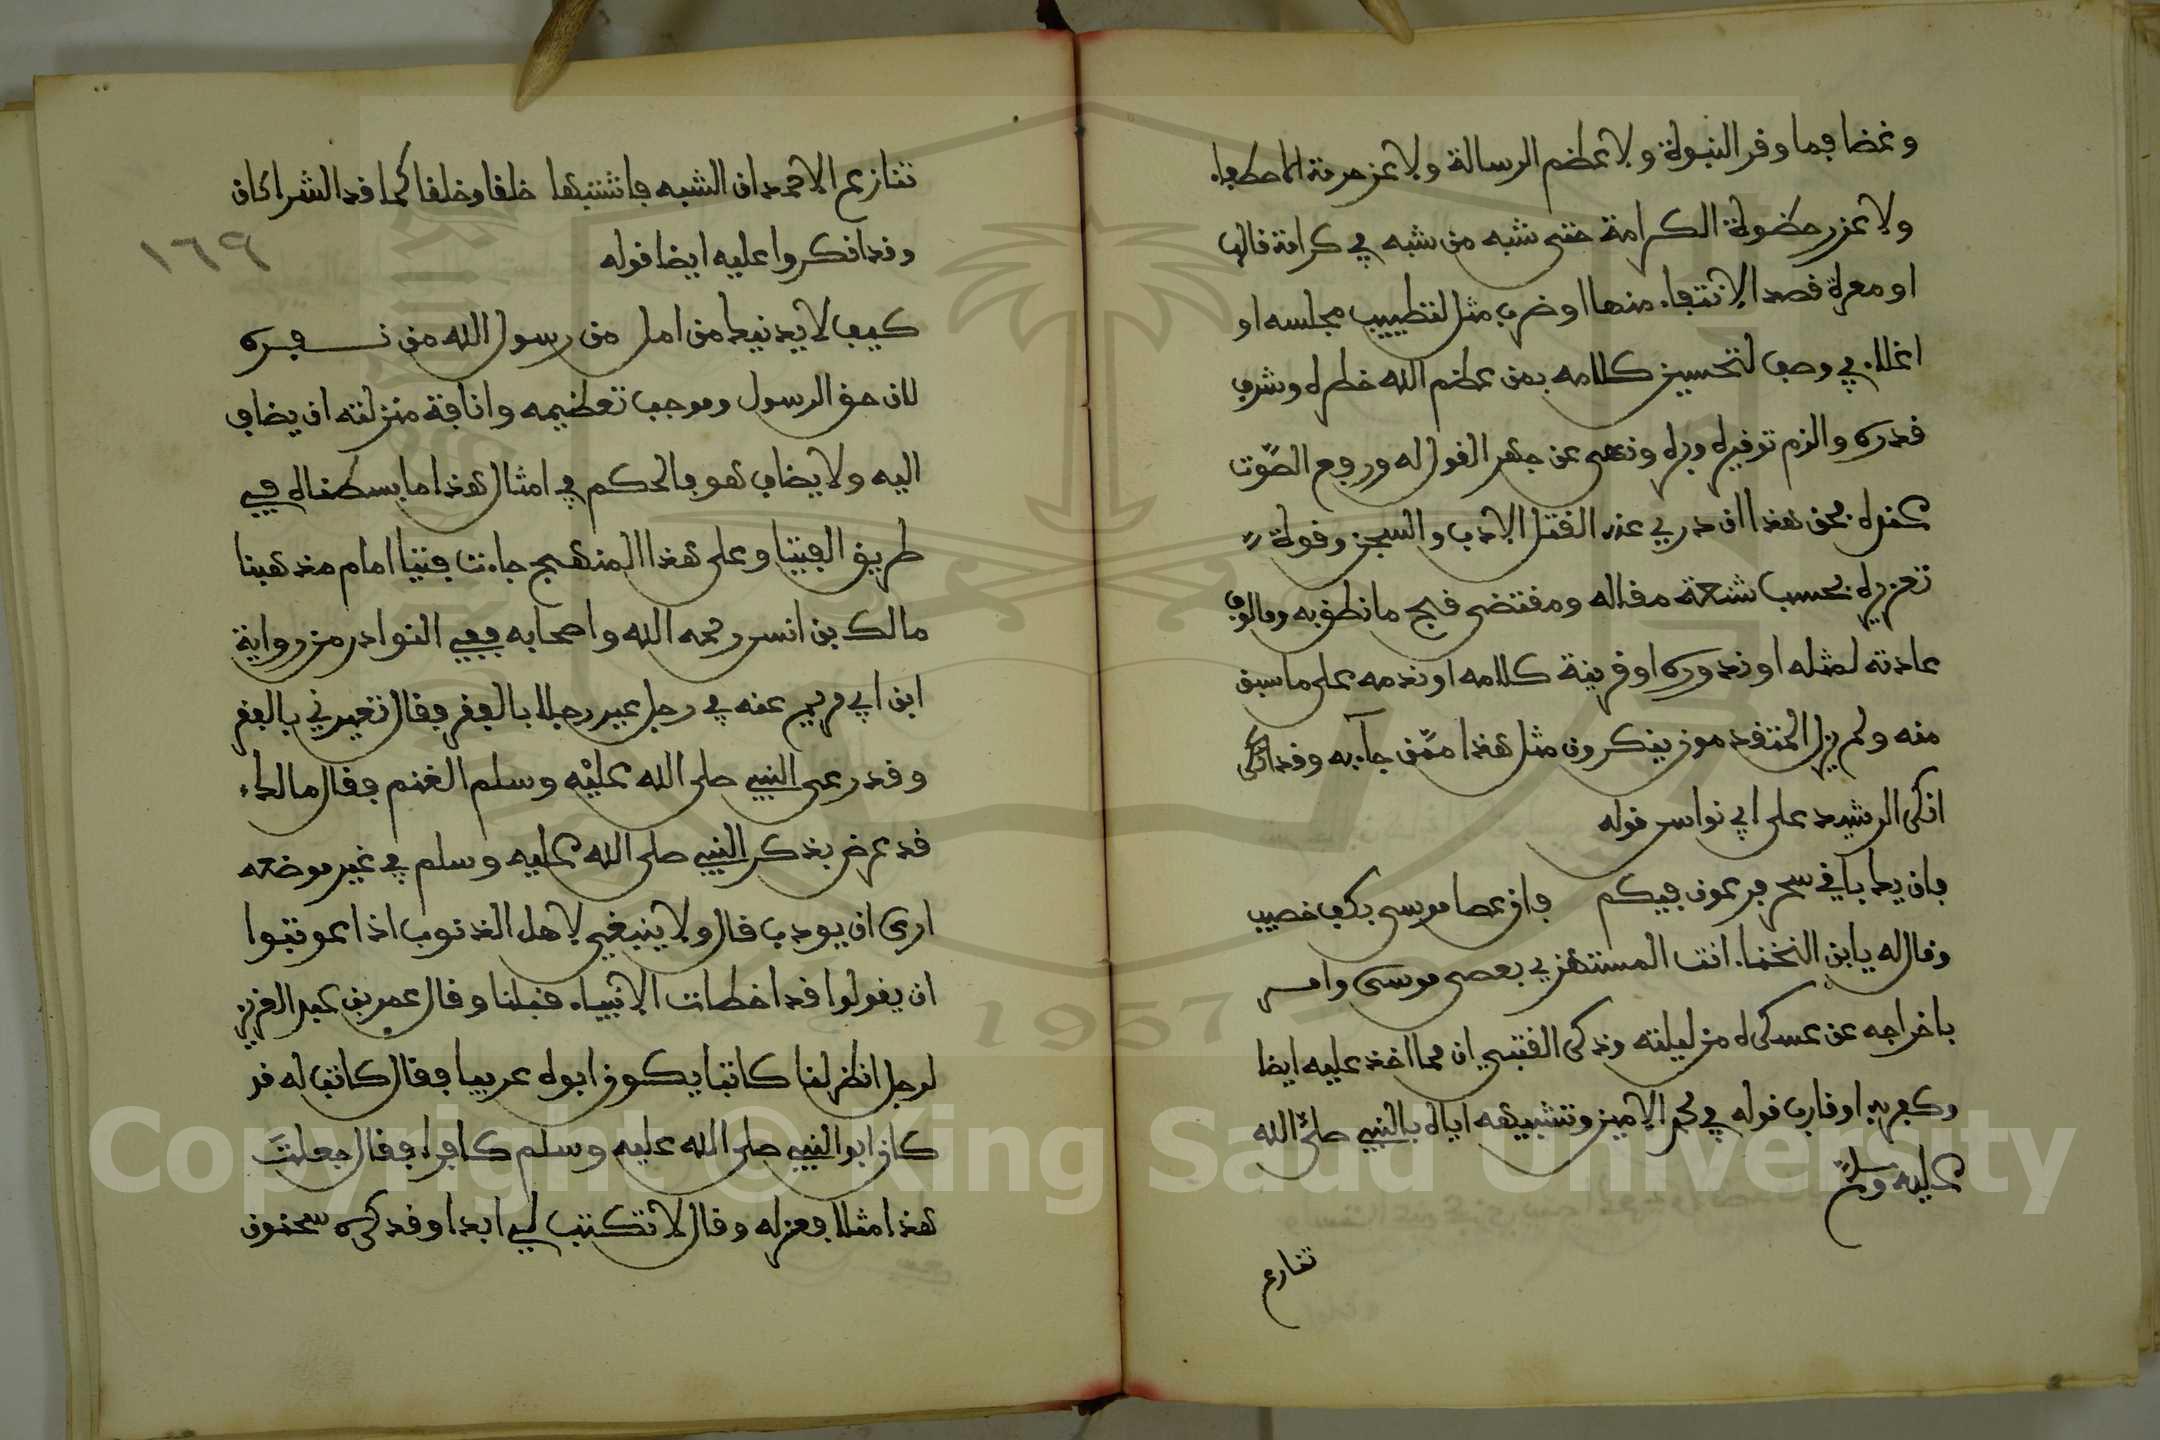 و غضا فما وقر النبولة ولا عظم الرسالة ولا عزر حرمة الاصطفاء
ولا عزر حظولة الكرامة حتى شبه من شبه في كرامة نالها
او معرلة قصد الانتفاء منها او ضرب مثل لتطييب مجلسه او
اغلاء في وصف لتحسين كلامه بمن عظم الله خطرله وشرف
قدره والزم توقيرله وبرله ونهى عن جهر القول له ورفع الصوت
عندله فحق هذا ان دري عنه القتل الادب والسجن وقولة
تعزيرله بحسب شنعة مقاله ومقتضى قبح ما نطق به ومالوف
عادته لمثله او ندوره او قرينة كلامه او ندمه على ما سبق
منه ولم يزل المتقدمون ينكرون مثل هذا ممن جاء به وقد انكر
انكر الرشيد على ابي نواس قوله
فان يك باقي سحر فرعون فيكم فان عصا موسى بكف خصيب
وقال له يابن اللخناء انت المستهزي بعصى موسى وامر
باخراجه عن عسكرله من ليلته وذكر القتبي ان مما اخذ عليه ايضا
وكفر به او قارب قوله في محمد الامين وتشبيهه اياله بالنبي صلى الله
عليه وسلم
تنازع
تنازع الاحمدان الشبه فاشتبها خلقا وخلقا كما قد الشراكان
وقد انكروا عليه ايضا قوله
كيف لا يدنيك من امل من رسول الله من نفره
لان حق الرسول وموجب تعظيمه وانافة منزلته ان يضاف
اليه ولا يضاف هو فالحكم في امثال هذا ما بسطناله في
طريق الفتيا وعلى هذا المنهج جاءت فتيا امام مذهبنا
مالك بن انس رحمه الله واصحابه ففي النوادر من رواية
ابن ابي مريم عنه في رجل عير رجلا بالفقر فقال تعيرني بالفقر
وقد رعى النبي صلى الله عليه وسلم الغنم فقال مالك
قد عرض بذكر النبي صلى الله عليه وسلم في غير موضعه
ارى ان يودب قال ولا ينبغي لاهل الذنوب اذا عوتبوا
ان يقولوا قد اخطات الانبياء قبلنا وقال عمر بن عبد العزيز
لرجل انظر لنا كاتبا يكون ابوله عربيا فقال كاتب له قد
كان ابو النبي صلى الله عليه وسلم كافرا فقال جعلت
هذا مثلا فعزله وقال لا تكتب لي ابدا وقد كره سحنون
١٦٩
1957
Copyright © King Saud University